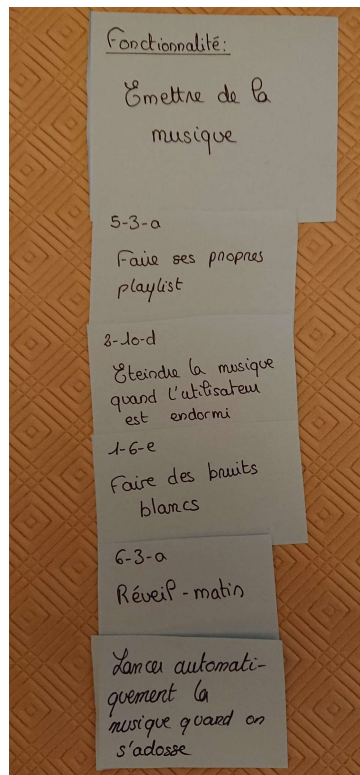 Fonctionnalité:
Emettre de la
musique
5-3-a
Faire ses propres
playlist
3-10-d
Eteindre la musique
quand l'utilisateur
est endormi
1-6-e
Faire des bruits
blancs
6-3-a
Réveil-matin
Lancer automati-
quement la
musique quand on
s'adosse